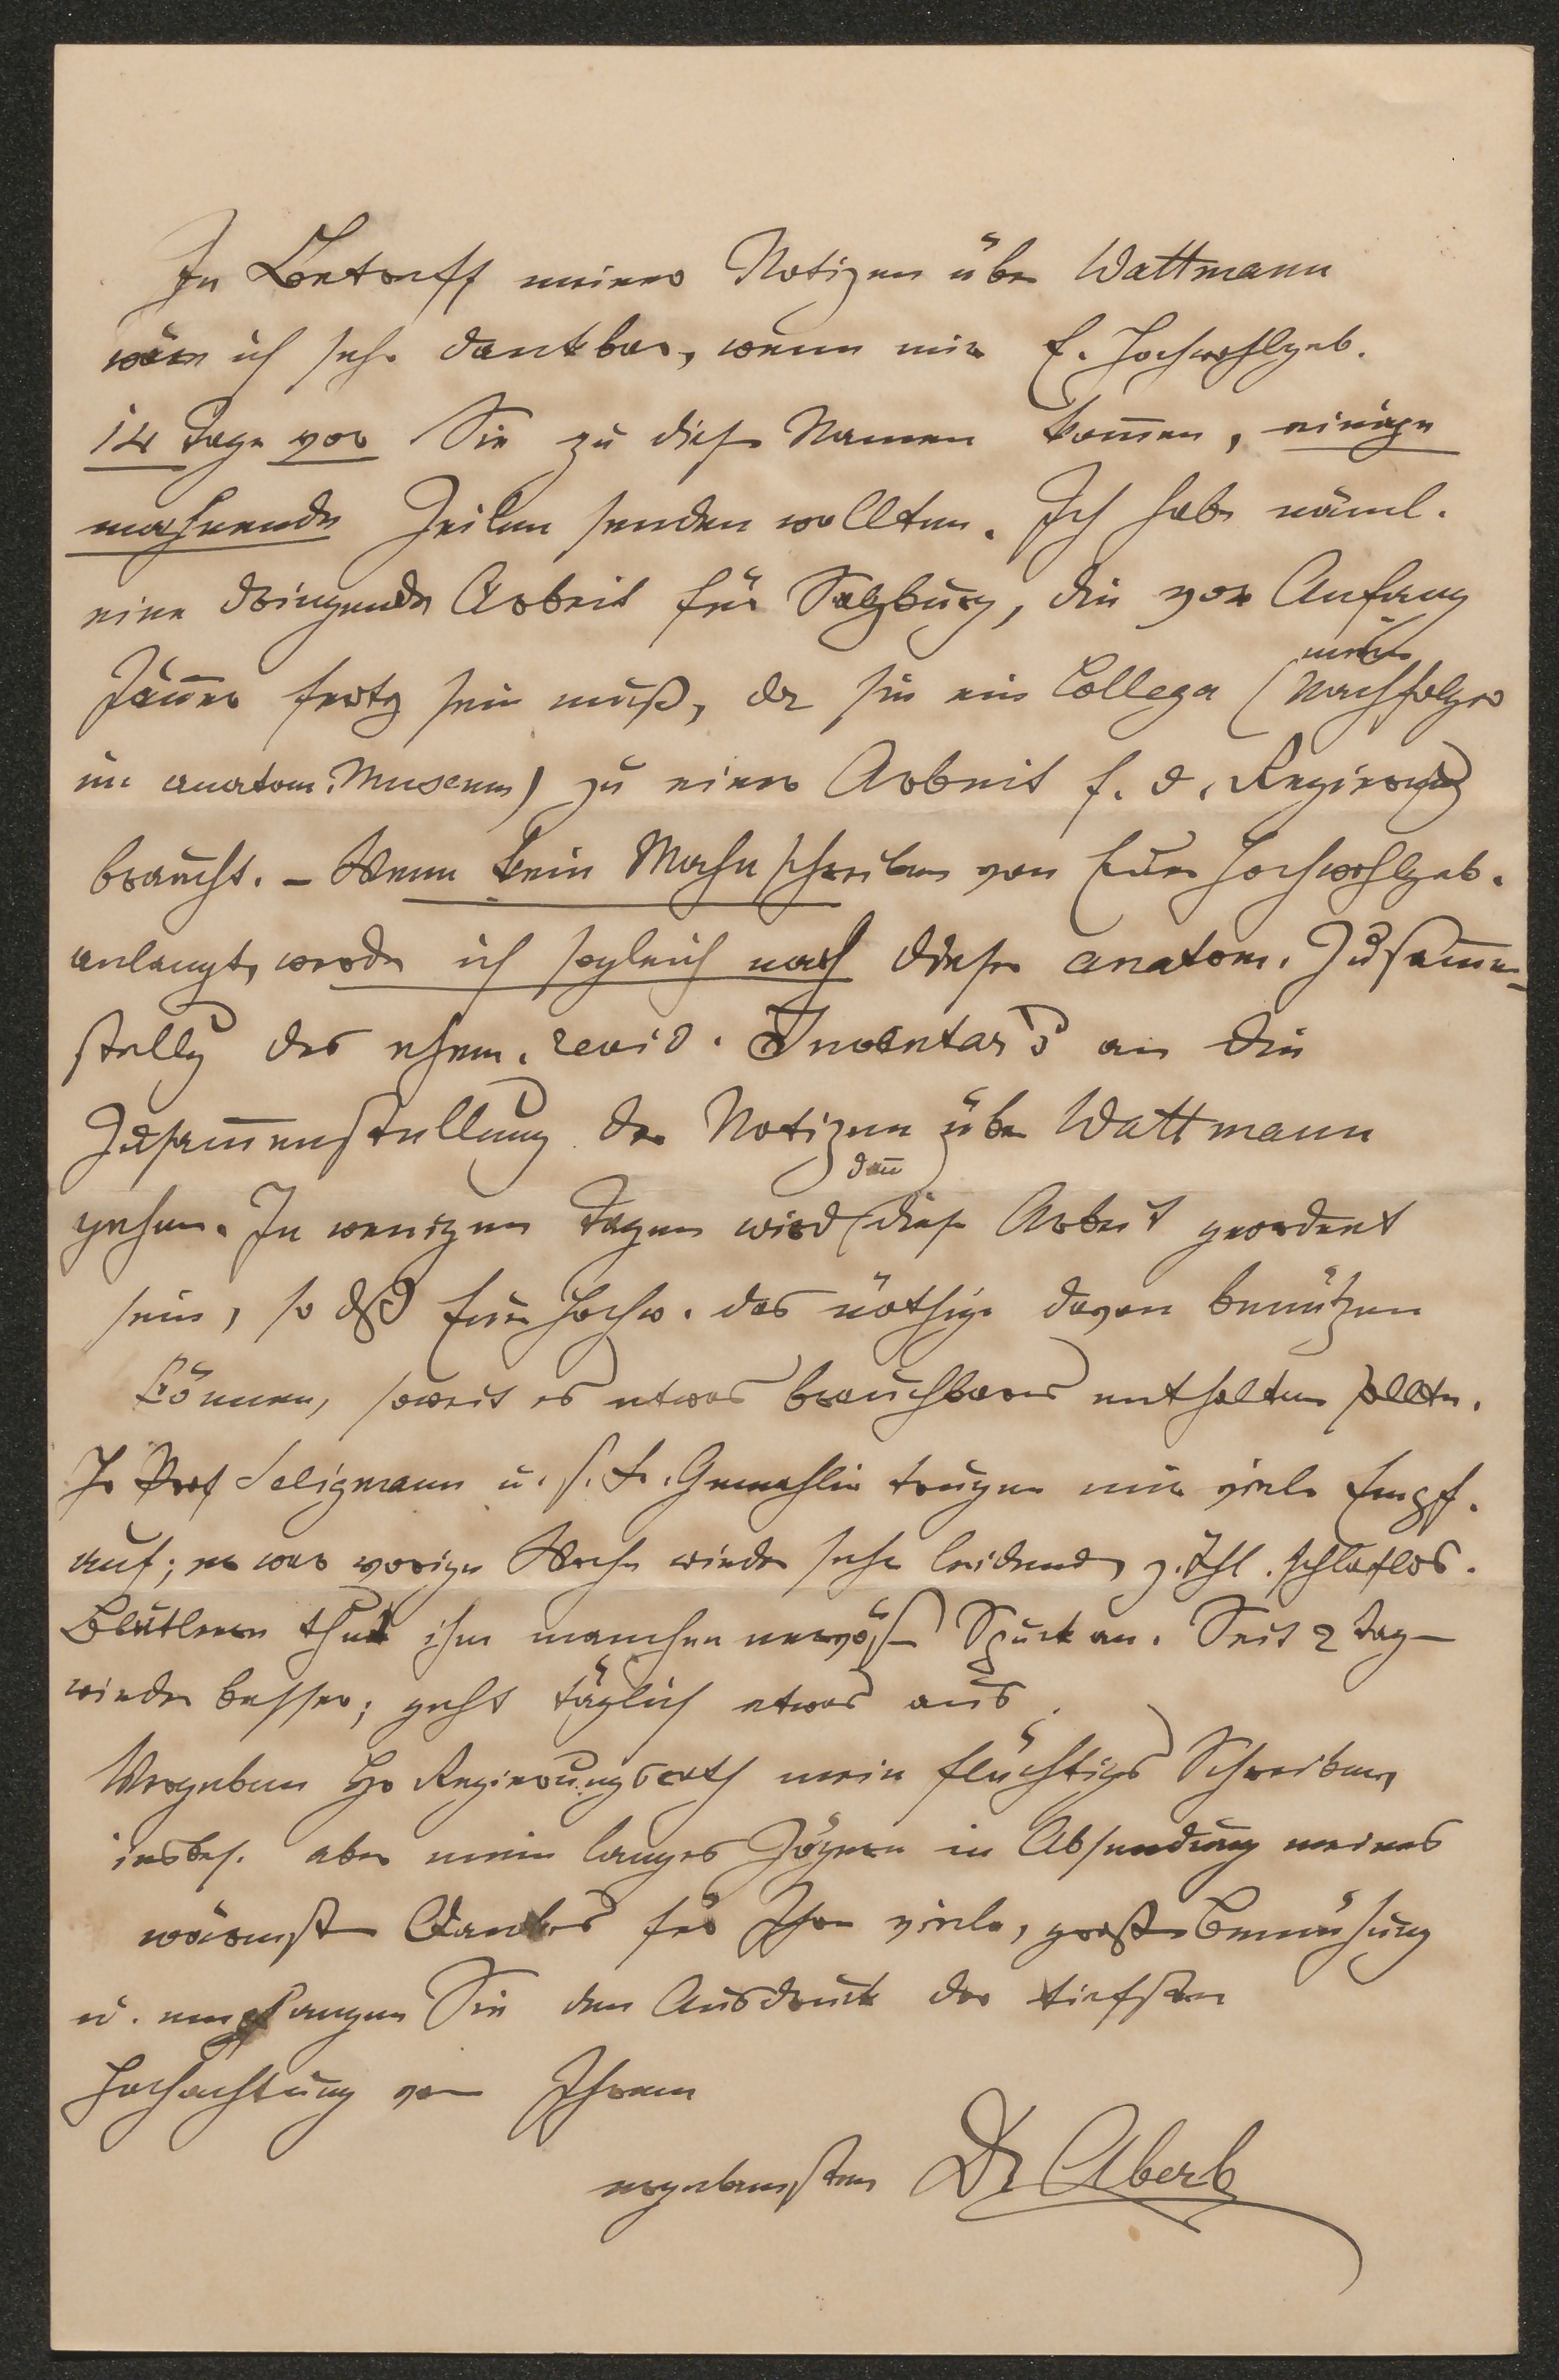 In Betreff meiner Notizen über Wattmann
wäre ich sehr dankbar, wenn mir E. Hochwohlgeb.
14 Tage vor Sie zu diesem Namen kom̅en, einige
mahnende Zeilen senden wollten. Ich habe näml.
eine dringende Arbeit für Salzburg, die vor Anfang
Jän̅er fertg sein muß, da sie ein Collega (mein Nachfolger
im anatom. Museum) zu einer Arbeit f. d. Regierung
braucht. – Wenn kein Mahnschreiben von Euer Hochwohlgeb.
anlangt, werde ich sogleich nach dieser anatom. Zusam̅en-
stellg des ehem. revid. Inventar's an die
Zusam̅enstellung der Notizen über Wattmann
gehen. In wenigen Tagen wird dan̅ diese Arbeit geordnet
sein, so dß Euer Hochw. das nöthige davon benützen
können, soweit es etwas brauchbares enthalten sollte.
Hr Prof Seligmann u. s. Fr. Gemahlin trugen mir viele Empf.
auf; er war vorige Woche wieder sehr leidend, z. Thl. schlaflos.
Blutleere thut ihm manchen nervösen Spuck an. Seit 2 Tag
wieder besser; geht täglich etwas aus.
Vergeben Hr Regierungsrath mein flüchtiges Schreiben,
insbes. aber mein langes Zögern in Absendung meines
wärmsten Dankes für Ihre viele, große Bemühung
u. empfangen Sie den Ausdruck der tiefsten
Hochachtung von Ihrem
ergebensten Dr Aberle